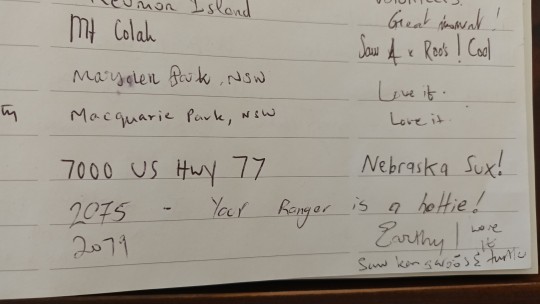 Reunion Island
Volunteers.
Great moment!
Mt Colah
Saw 4 x Roos! Cool
Marsden Park, NSW
Love it.
ty
Macquarie Park, NSW
Love it
7000 US Hwy 77
Nebraska Sux!
2075 - Your Ranger is a hottie!
2079
Earthy! Love it
Saw kangaroos & turtle